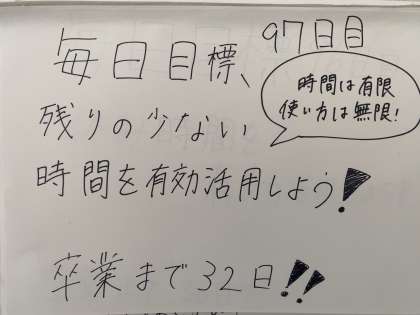 毎日目標、97日目
時間は有限
使い方は無限!
残りの少ない
時間を有効活用しよう!
卒業まで32日!!